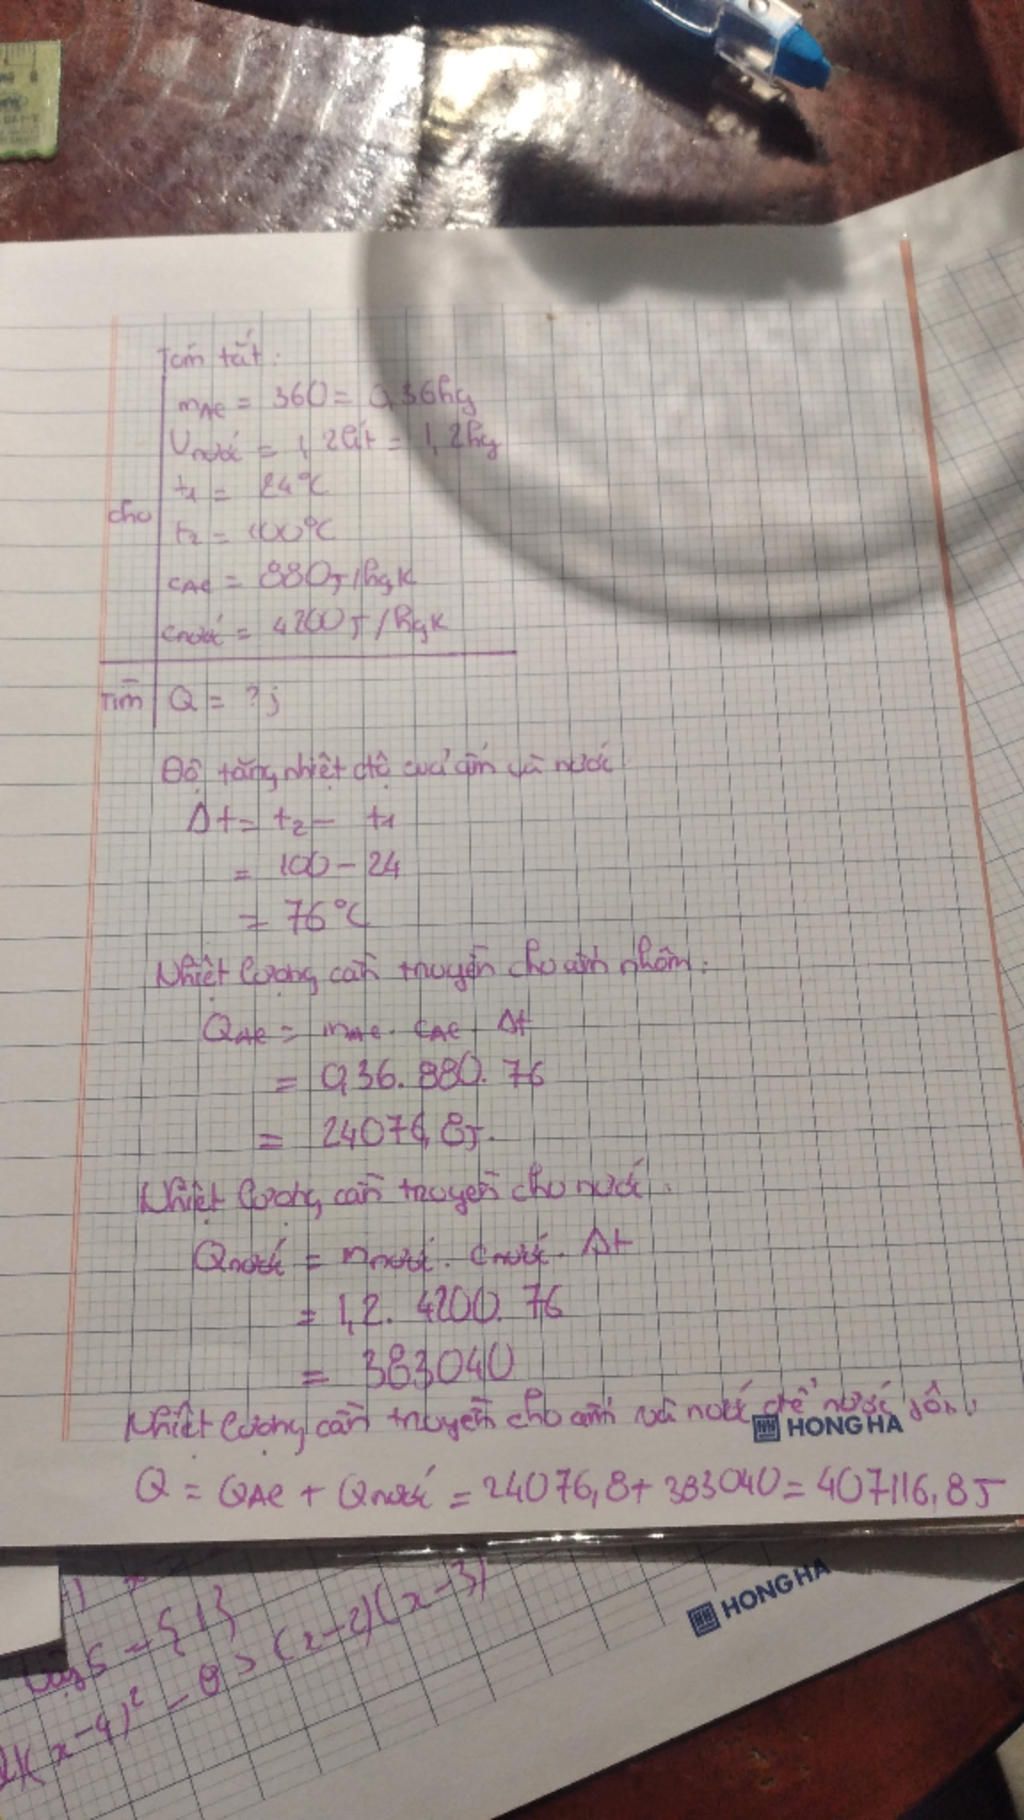 Tóm tắt:
mAl = 360 = 0,36kg
Vnước = 1,2lít = 1,2kg
t1 = 24°C
cho
t2 = 100°C
cAl = 880J/kgK
cnước = 4200J/kgK
Tìm Q = ? j
Độ tăng nhiệt độ của ấm và nước
Δt = t2 - t1
= 100 - 24
= 76°C
Nhiệt lượng cần truyền cho ấm nhôm:
QAl = mAl. cAl Δt
= 0,36. 880. 76
= 24076,8J.
Nhiệt lượng cần truyền cho nước.
Qnước = mnước. cnước. Δt
= 1,2. 4200. 76
= 383040
Nhiệt lượng cần truyền cho ấm và nước để nước sôi
HONG HA
Q = QAl + Qnước = 24076,8 + 383040 = 407116,8J
HONG HA
S = {1}
(x-4)² - 9 > (x-2)(x-3)